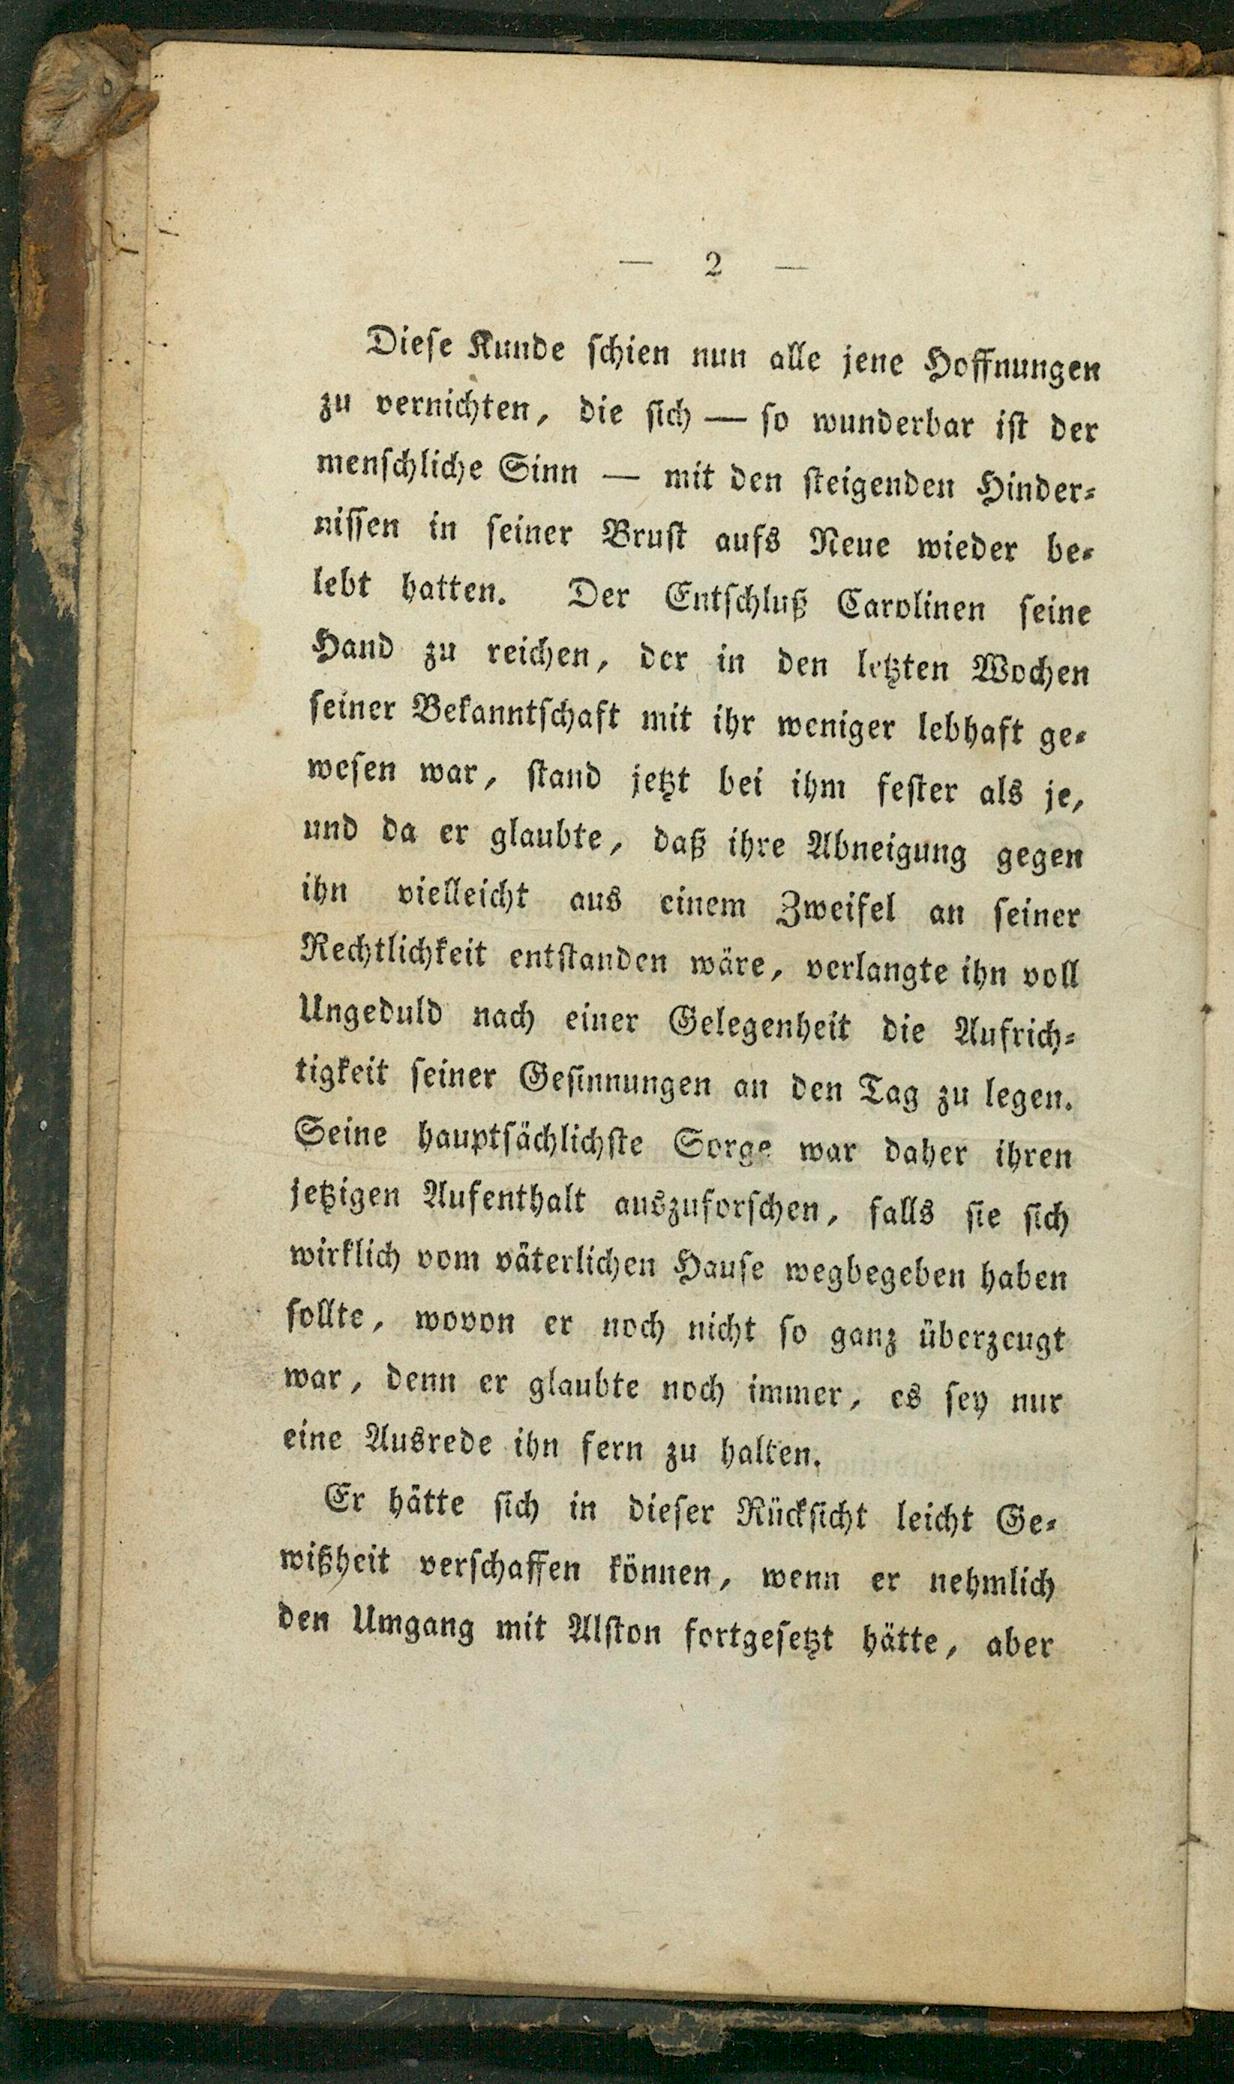 — 2 —
Diese Kunde schien nun alle jene Hoffnungen
zu vernichten, die sich — so wunderbar ist der
menschliche Sinn — mit den steigenden Hinder-
nissen in seiner Brust aufs Neue wieder be-
lebt hatten. Der Entschluß Carolinen seine
Hand zu reichen, der in den letzten Wochen
seiner Bekanntschaft mit ihr weniger lebhaft ge-
wesen war, stand jetzt bei ihm fester als je,
und da er glaubte, daß ihre Abneigung gegen
ihn vielleicht aus einem Zweifel an seiner
Rechtlichkeit entstanden wäre, verlangte ihn voll
Ungeduld nach einer Gelegenheit die Aufrich-
tigkeit seiner Gesinnungen an den Tag zu legen.
Seine hauptsächlichste Sorge war daher ihren
jetzigen Aufenthalt auszuforschen, falls sie sich
wirklich vom väterlichen Hause wegbegeben haben
sollte, wovon er noch nicht so ganz überzeugt
war, denn er glaubte noch immer, es sey nur
eine Ausrede ihn fern zu halten.
Er hätte sich in dieser Rücksicht leicht Ge-
wißheit verschaffen können, wenn er nehmlich
den Umgang mit Alston fortgesetzt hätte, aber